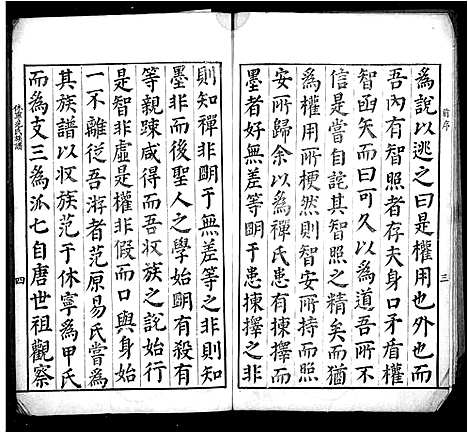 前序
三
為說以逃之曰是權用也外也而
吾內有智照者存夫身口矛盾權
智函矢而曰可久以為道吾所不
信是嘗自詫其智照之精矣而猶
為權用所梗然則智安所持而照
安所歸余以為禪氏患有揀擇而
墨者好無差等明于患揀擇之非
則知禪非明于無差等之非則知
墨非而後聖人之學始明有殺有
等親疎咸得而吾収族之說始行
是智非虛是權非假而口與身始
一不離従吾游者范原易氏嘗為
其族譜以収族范于休寧為甲氏
而為支三為派七自唐世祖觀察
休寧范氏族譜
四